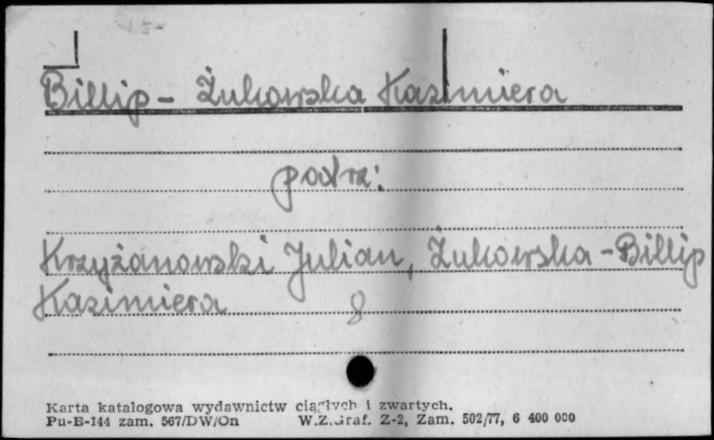 Billip - Żukowska Kazimiera
patrz:
Krzyżanowski Julian, Żukowska-Billip
Kazimiera 8
Karta katalogowa wydawnictw ciągłych i zwartych.
Pu-B-144 zam. 567/DW/On W.Z.Graf. Z-2, Zam. 502/77, 6 400 000